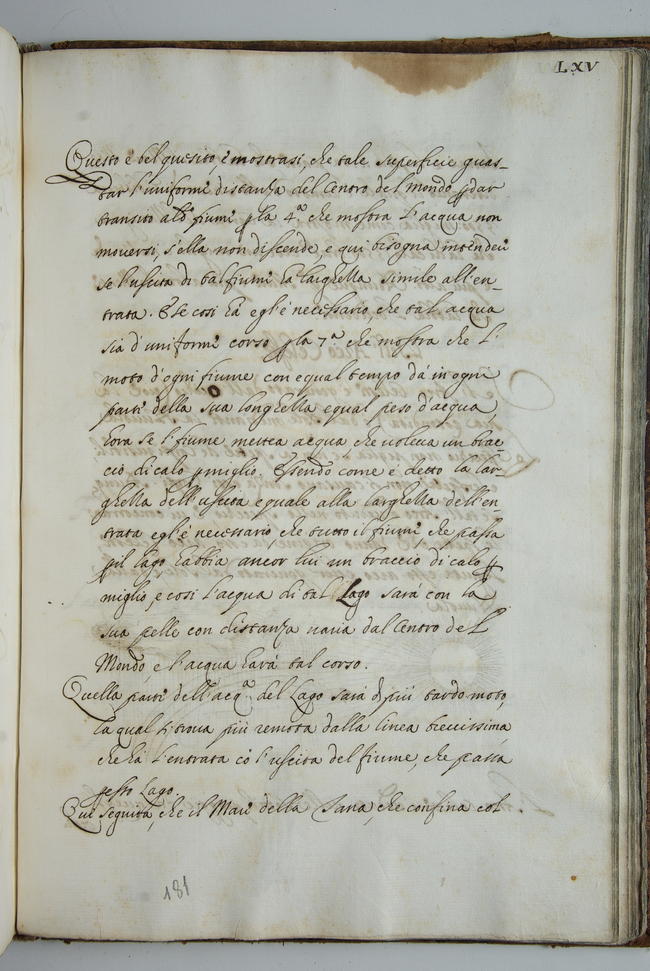 LXV
Questo è bel quesito è mostrasi, che tale superficie guas-
tar l'uniforme distanza del Centro del mondo p dar
transito al d.º fiume p la 4.ª che mostra l'acqua non
moversi, s'ella non discende, e qui bisogna intendere
se l'uscita di tal fiume ha larghezza simile all'en-
trata. E se così ha egl'è necessario, che tal acqua
sia d'uniforme corso p la 7.ª che mostra che l'
moto d'ogni fiume con equal tempo dà in ogni
parte della sua longhezza equal peso d'acqua,
hora se l'fiume, mettea acqua che voleva un brac-
cio di calo p miglio. Essendo come è detto la lar-
ghezza dell'uscita equale alla larghezza dell'en-
trata egl'è necessario, che tutto il fiume, che passa
p il lago habbia ancor lui un braccio di calo p
miglio, e così l'acqua di tal Lago sara con la
sua pelle con distanza varia dal Centro del
Mondo, e l'acqua harà tal corso.
Quella parte dell'acq.ª del Lago sarà di più tardo moto,
la qual si trova più remota dalla linea brevissima,
che hà l'entrata cõ l'uscita del fiume, che passa
p esso Lago.
Qui seguita, che il Mare della Tana, che confina col
181